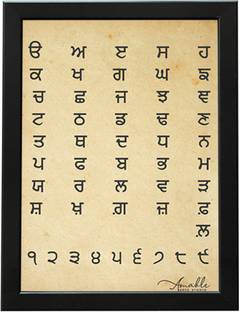 ੳ ਅ ੲ ਸ ਹ
ਕ ਖ ਗ ਘ ਙ
ਚ ਛ ਜ ਝ ਞ
ਟ ਠ ਡ ਢ ਣ
ਤ ਥ ਦ ਧ ਨ
ਪ ਫ ਬ ਭ ਮ
ਯ ਰ ਲ ਵ ੜ
ਸ਼ ਖ਼ ਗ਼ ਜ਼ ਫ਼
ਲ਼
੧ ੨ ੩ ੪ ੫ ੬ ੭ ੮ ੯
Amable